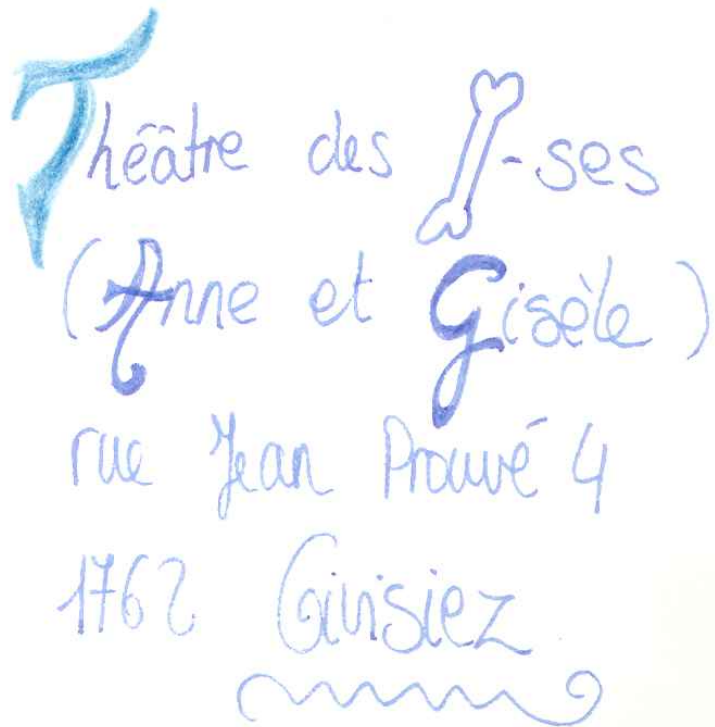 Théâtre des -ses
(Anne et Gisèle)
rue Jean Prouvé 4
1762 Givisiez